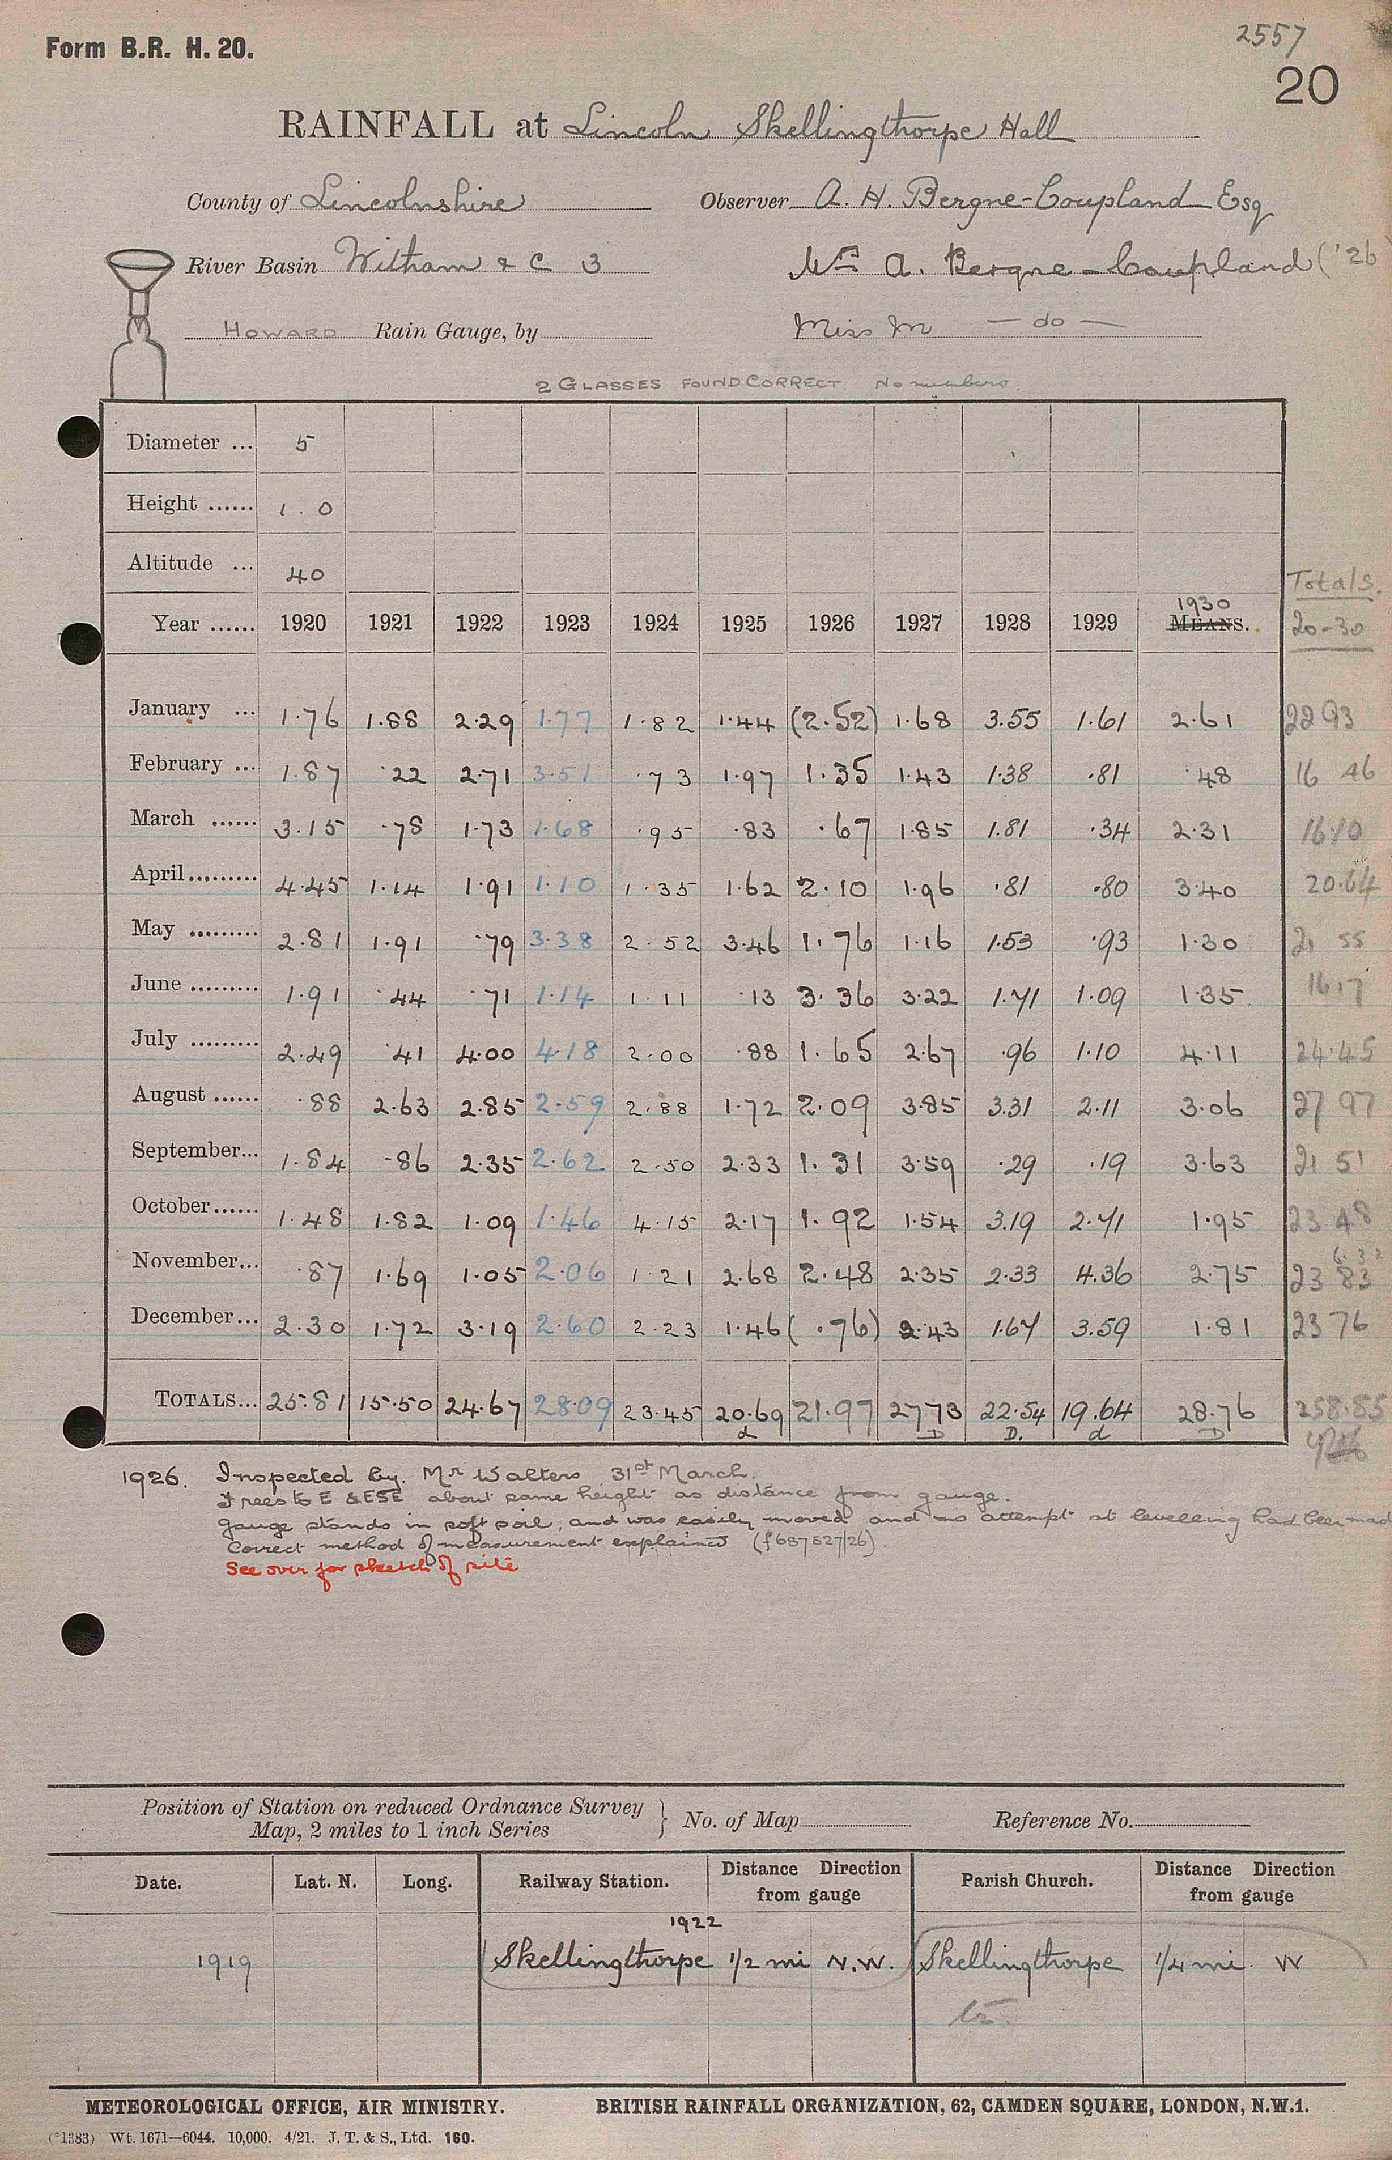 Form B.R. H. 20.
2557
20
RAINFALL at Lincoln Skellingthorpe Hall
County of Lincolnshire Observer A. H. Bergne-Coupland Esq
River Basin Witham & C 3 Mrs A. Bergne-Coupland ('26)
HOWARD Rain Gauge, by Miss M — do —
2 GLASSES FOUND CORRECT No numbers
Diameter ... 5
Height ...... 1.0
Altitude ... 40
Totals
Year ...... 1920 1921 1922 1923 1924 1925 1926 1927 1928 1929 1930 MEANS. 20-30
January ... 1.76 1.88 2.29 1.77 1.82 1.44 (2.52) 1.68 3.55 1.61 2.61 22 93
February ... 1.87 .22 2.71 3.51 .73 1.97 1.35 1.43 1.38 .81 .48 16 46
March ...... 3.15 .78 1.73 1.68 .95 .83 .67 1.85 1.81 .34 2.31 16.10
April......... 4.45 1.14 1.91 1.10 1.35 1.62 2.10 1.96 .81 .80 3.40 20.64
May ......... 2.81 1.91 .79 3.38 2.52 3.46 1.76 1.16 1.53 .93 1.30 21 55
June ......... 1.91 .44 .71 1.14 1.11 .13 3.36 3.22 1.71 1.09 1.35 16.17
July ......... 2.49 .41 4.00 4.18 2.00 .88 1.65 2.67 .96 1.10 4.11 24.45
August ...... .88 2.63 2.85 2.59 2.88 1.72 2.09 3.85 3.31 2.11 3.06 27 97
September... 1.84 .86 2.35 2.62 2.50 2.33 1.31 3.59 .29 .19 3.63 21 51
October...... 1.48 1.82 1.09 1.46 4.15 2.17 1.92 1.54 3.19 2.71 1.95 23.48
November... .87 1.69 1.05 2.06 1.21 2.68 2.48 2.35 2.33 4.36 2.75 23 83
December... 2.30 1.72 3.19 2.60 2.23 1.46 (.76) 2.43 1.67 3.59 1.81 23 76
TOTALS... 25.81 15.50 24.67 28.09 23.45 20.69 21.97 27.73 22.54 19.64 28.76 258.85
d D D. d D
1926. Inspected by Mr Walters 31st March.
Trees to E & ESE about same height as distance from gauge.
Gauge stands in soft soil, and was easily moved and no attempt at levelling had been mad
Correct method of measurement explained (f687827/26)
See over for sketch of site
Position of Station on reduced Ordnance Survey
Map, 2 miles to 1 inch Series } No. of Map Reference No.
Date. Lat. N. Long. Railway Station. Distance Direction from gauge Parish Church. Distance Direction from gauge
1922
1919 Skellingthorpe 1/2 mi N.W. Skellingthorpe 1/4 mi W
METEOROLOGICAL OFFICE, AIR MINISTRY. BRITISH RAINFALL ORGANIZATION, 62, CAMDEN SQUARE, LONDON, N.W.1.
(*1383) Wt. 1671—6044. 10,000. 4/21. J. T. & S., Ltd. 160.